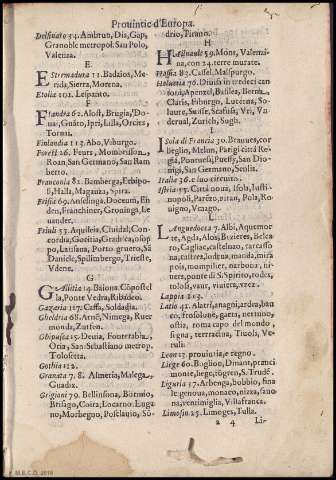 Prouintie d'Europa.
Delfinato 54. Ambrun, Dia, Gap,
Granoble metropol. San Polo,
Valenza.
E
Estremadura 11. Badaios, Me-
rida, Sierra, Morena.
Etolia 102. Lespanto.
F
Fiandra 62. Alost, Brugia, Do-
Tornai.
Finlandia 113. Abo, Viburgo.
Forest 26. Feurs, Mombrisson,
Roan, San Germano, San Ram
berto.
Franconia 81. Bamberga, Erbipo-
li, Hala, Magantia, Spira.
Frisia 69. Docum, En
den, Franchiner, Groninga, Le
uarder.
Friuli 53. Aquileia, Ciuidal, Con-
cordia, Goritia, Gradisca,
po, Latisana, Porto gruero, Sã
Daniele, Spilimbergo, Trieste,
Vdene.
G
Galitia 14. Baiona, Cõpostel
la, Ponte Vedra, Ribadeo.
Gazaria 117. Caffa, Soldadia.
Gheldria 68. Nimega, Ruer
monda, Zutfen.
Ghipusca 15. Deuia, Fonterabia,
Oria, San Sebastiano metrop.
Tolosetta.
Gothia 112.
Granata 7. 8. Almeria, Malega,
Guadix.
Grigioni 79. Bellinsona, Bormio,
Brisago, Coira, Locarno, Luga
no, Morbegno, Posclauio, Sõ-
drio, Tirano.
H
Hannonia 59. Mont, Valentia-
na, con 24. terre murate.
Hassia 83. Cassel, Malspurgo.
Heluetia 76. Diuisa in tredeci can
toni, Apenzel, Basilea, Berna,
Claris, Friburgo, Lucerna, So-
laure, Suisse, Scafusa, Vri, Va
dernal, Zurich, Sugh.
I
Isola di Francia 30. cor
beglio, Melun, Parigi città Re-
gia, Pontuesi, San Dio-
nigi, San Germano, Senlis.
Italia 36. e suo circuito.
Istria 55. Città noua, Isola, Iusti-
nopoli, Parẽzo, Piran, Pola, Ro-
uigno, Vmago.
L
Languedocca 27. Albi, Aquemor
te, Agda, Alois, Bezieres, Belca
ro, Cagliac, castelduno, carcasso
na, castres, mirada, mira
pois, mompelier, narbona, ni-
mes, ponte di S. Spirito, rodes,
tolosa, vaures, viuiers, vzez.
Lappia 113.
Latio 45. Alatri, anagni, ardea, bauc
co, frosolone, gaeta, nettuno,
ostia, roma capo del mondo,
segna, terracina, Tiuoli, Ve-
ruli.
Leon 15. prouintia, e regno.
Liege 60. Boglion, Dinant, franci
monte, liege, tõgren, S. Trudẽ.
Liguria 37. Arbenga, bobbio, fina
le, genoua, monaco, nizza, sauo
na, ventimiglia, Villafranca.
Limosin 25. Limoges, Tulla.
a 4
Li-
M.E.C.D. 2016